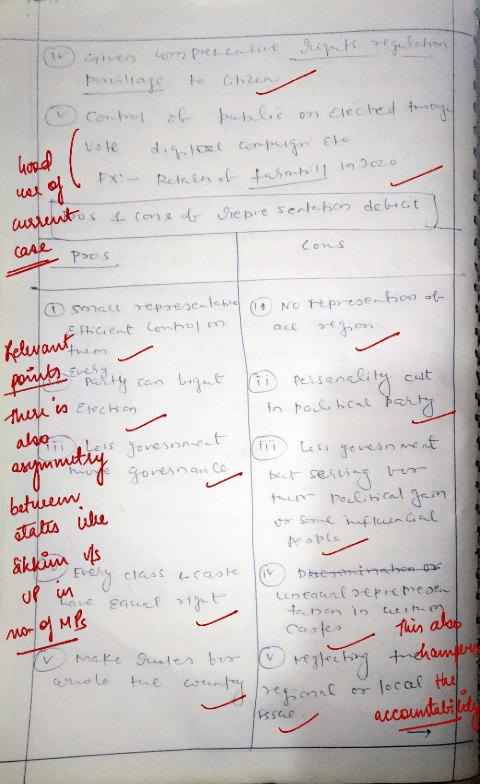 (iv) Given comprehensive rights regulation
privillage to citizen
(v) Control of public on elected through
vote digital campaign etc
Ex:- Return of farmbill in 2020
Good
use of
current
case
Pros & cons of representation deficit
Pros
(i) Small representative
efficient control on
them
(ii) Every party can fight
election
(iii) Less government
more governance
(iv) Every class & caste
have equal right
(v) Make rules for
whole the country
Relevant
points
There is
also
asymmetry
between
states like
Sikkim v/s
UP in
no. of MPs
Cons
(i) No represention of
all region
(ii) Personality cult
in political party
(iii) Less government
but serving for
their political gain
or some influencial
people
(iv) Descrimination or
unequal represen
tation in
castes
(v) Neglecting the
regional or local
issue.
This also
hampers
the
accountability